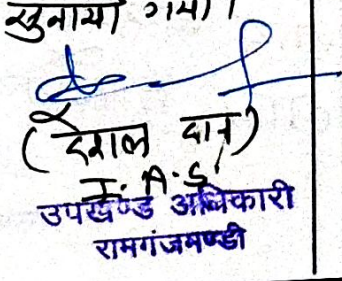 सुनाया गया।
(देशल दान)
I.A.S.
उपखण्ड अधिकारी
रामगंजमण्डी